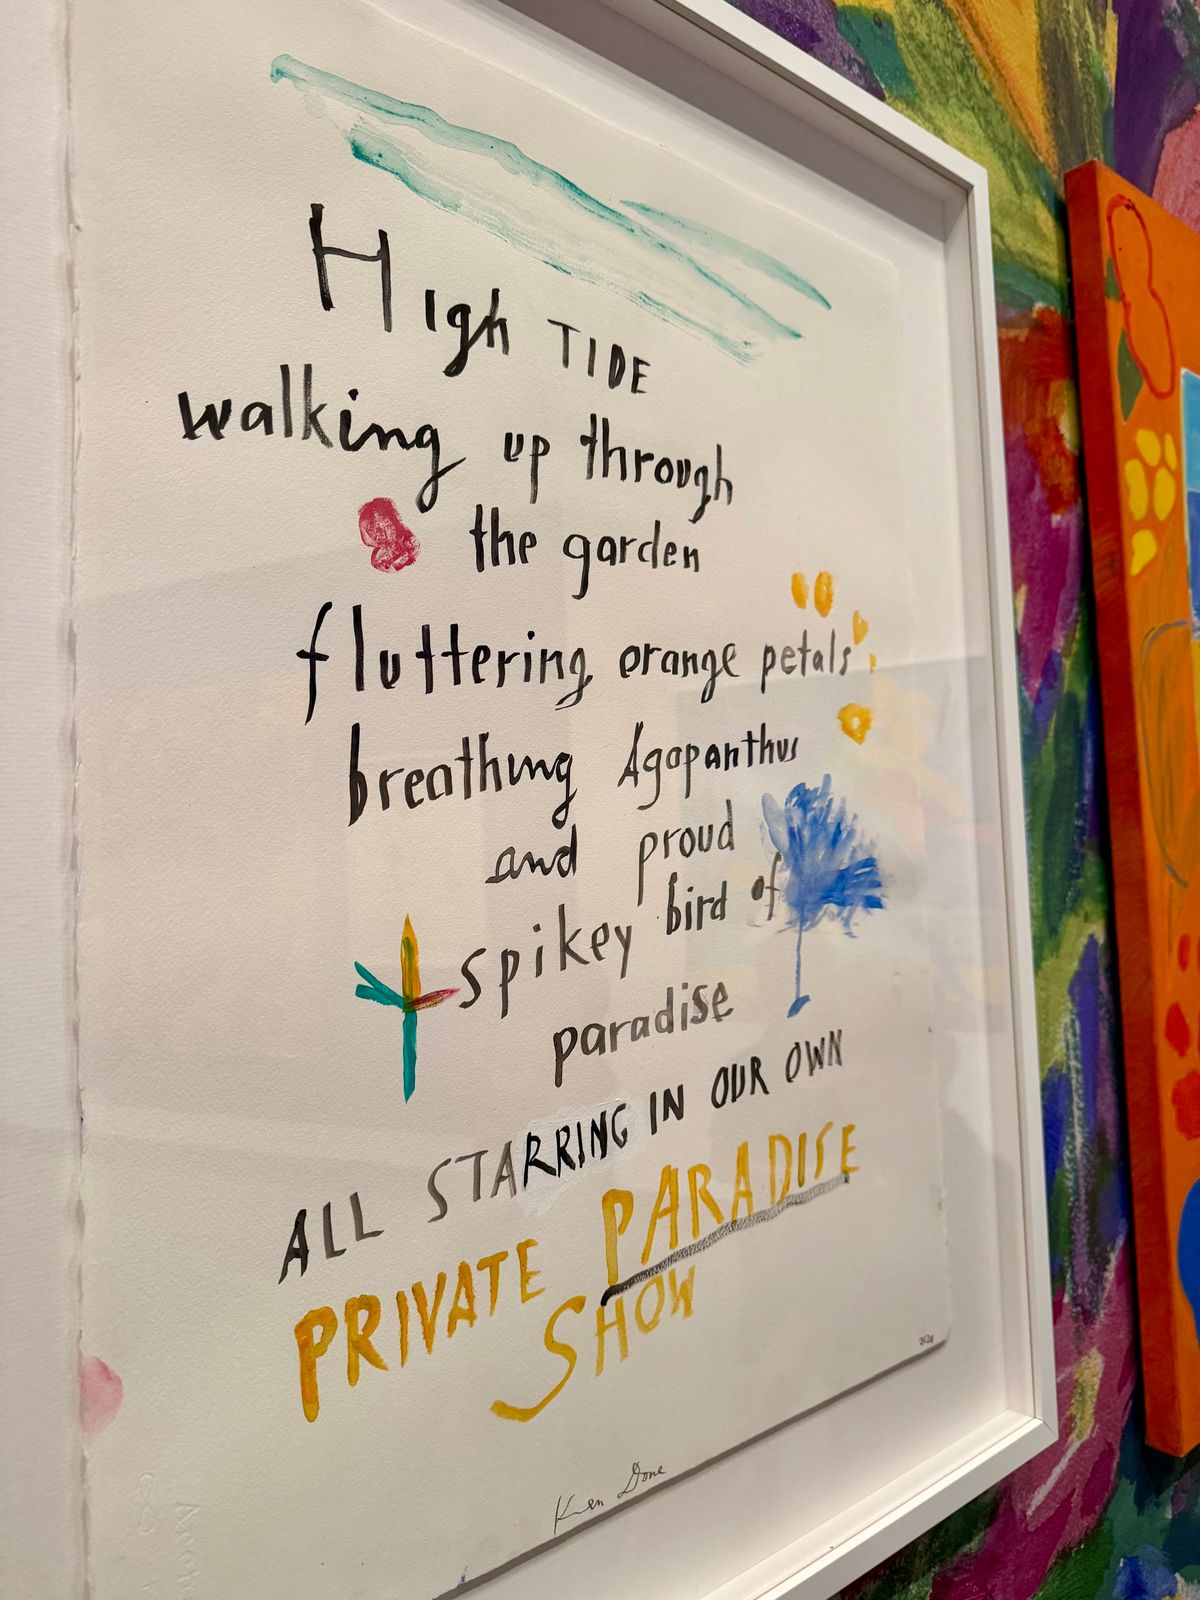 High TIDE
walking up through
the garden
fluttering orange petals
breathing Agapanthus
and proud
spikey bird of
paradise
ALL STARRING IN OUR OWN
PRIVATE PARADISE
SHOW
Ken Done